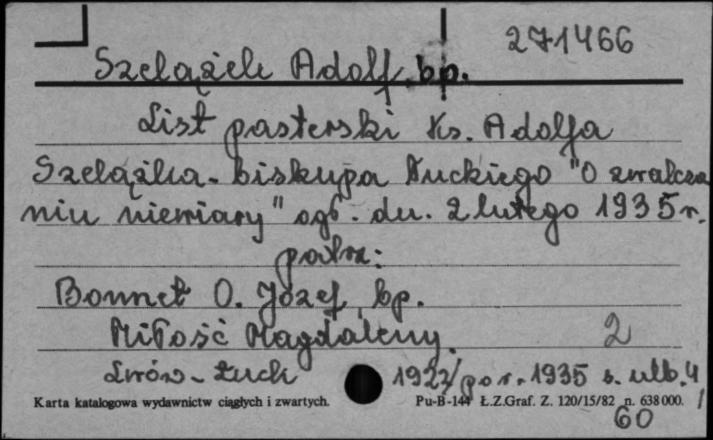 271466
Szelążek Adolf, bp.
List pasterski Ks. Adolfa
Szelążka - biskupa Łuckiego "O zwalcza
niu niewiary" ogł. dn. 2 lutego 1935 r.
patrz:
Bonnet O. Józef, bp.
Miłość Magdaleny.
2
Lwów - Łuck 1922/por. 1935 s. ulb. 4
Karta katalogowa wydawnictw ciągłych i zwartych. Pu-B-144 Ł.Z.Graf. Z. 120/15/82 n. 638000.
60